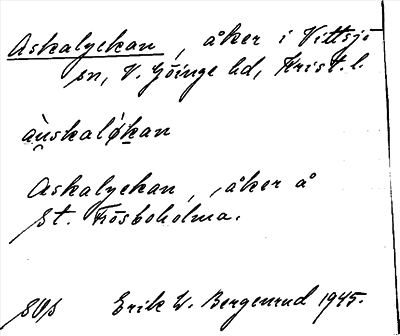 Askalyckan, åker i Vittsjö
sn, V. Göinge hd, Krist. l.
au̯skalø̀kan
Askalyckan, åker å
St. Frösboholma.
Erik W. Bergenrud 1945.